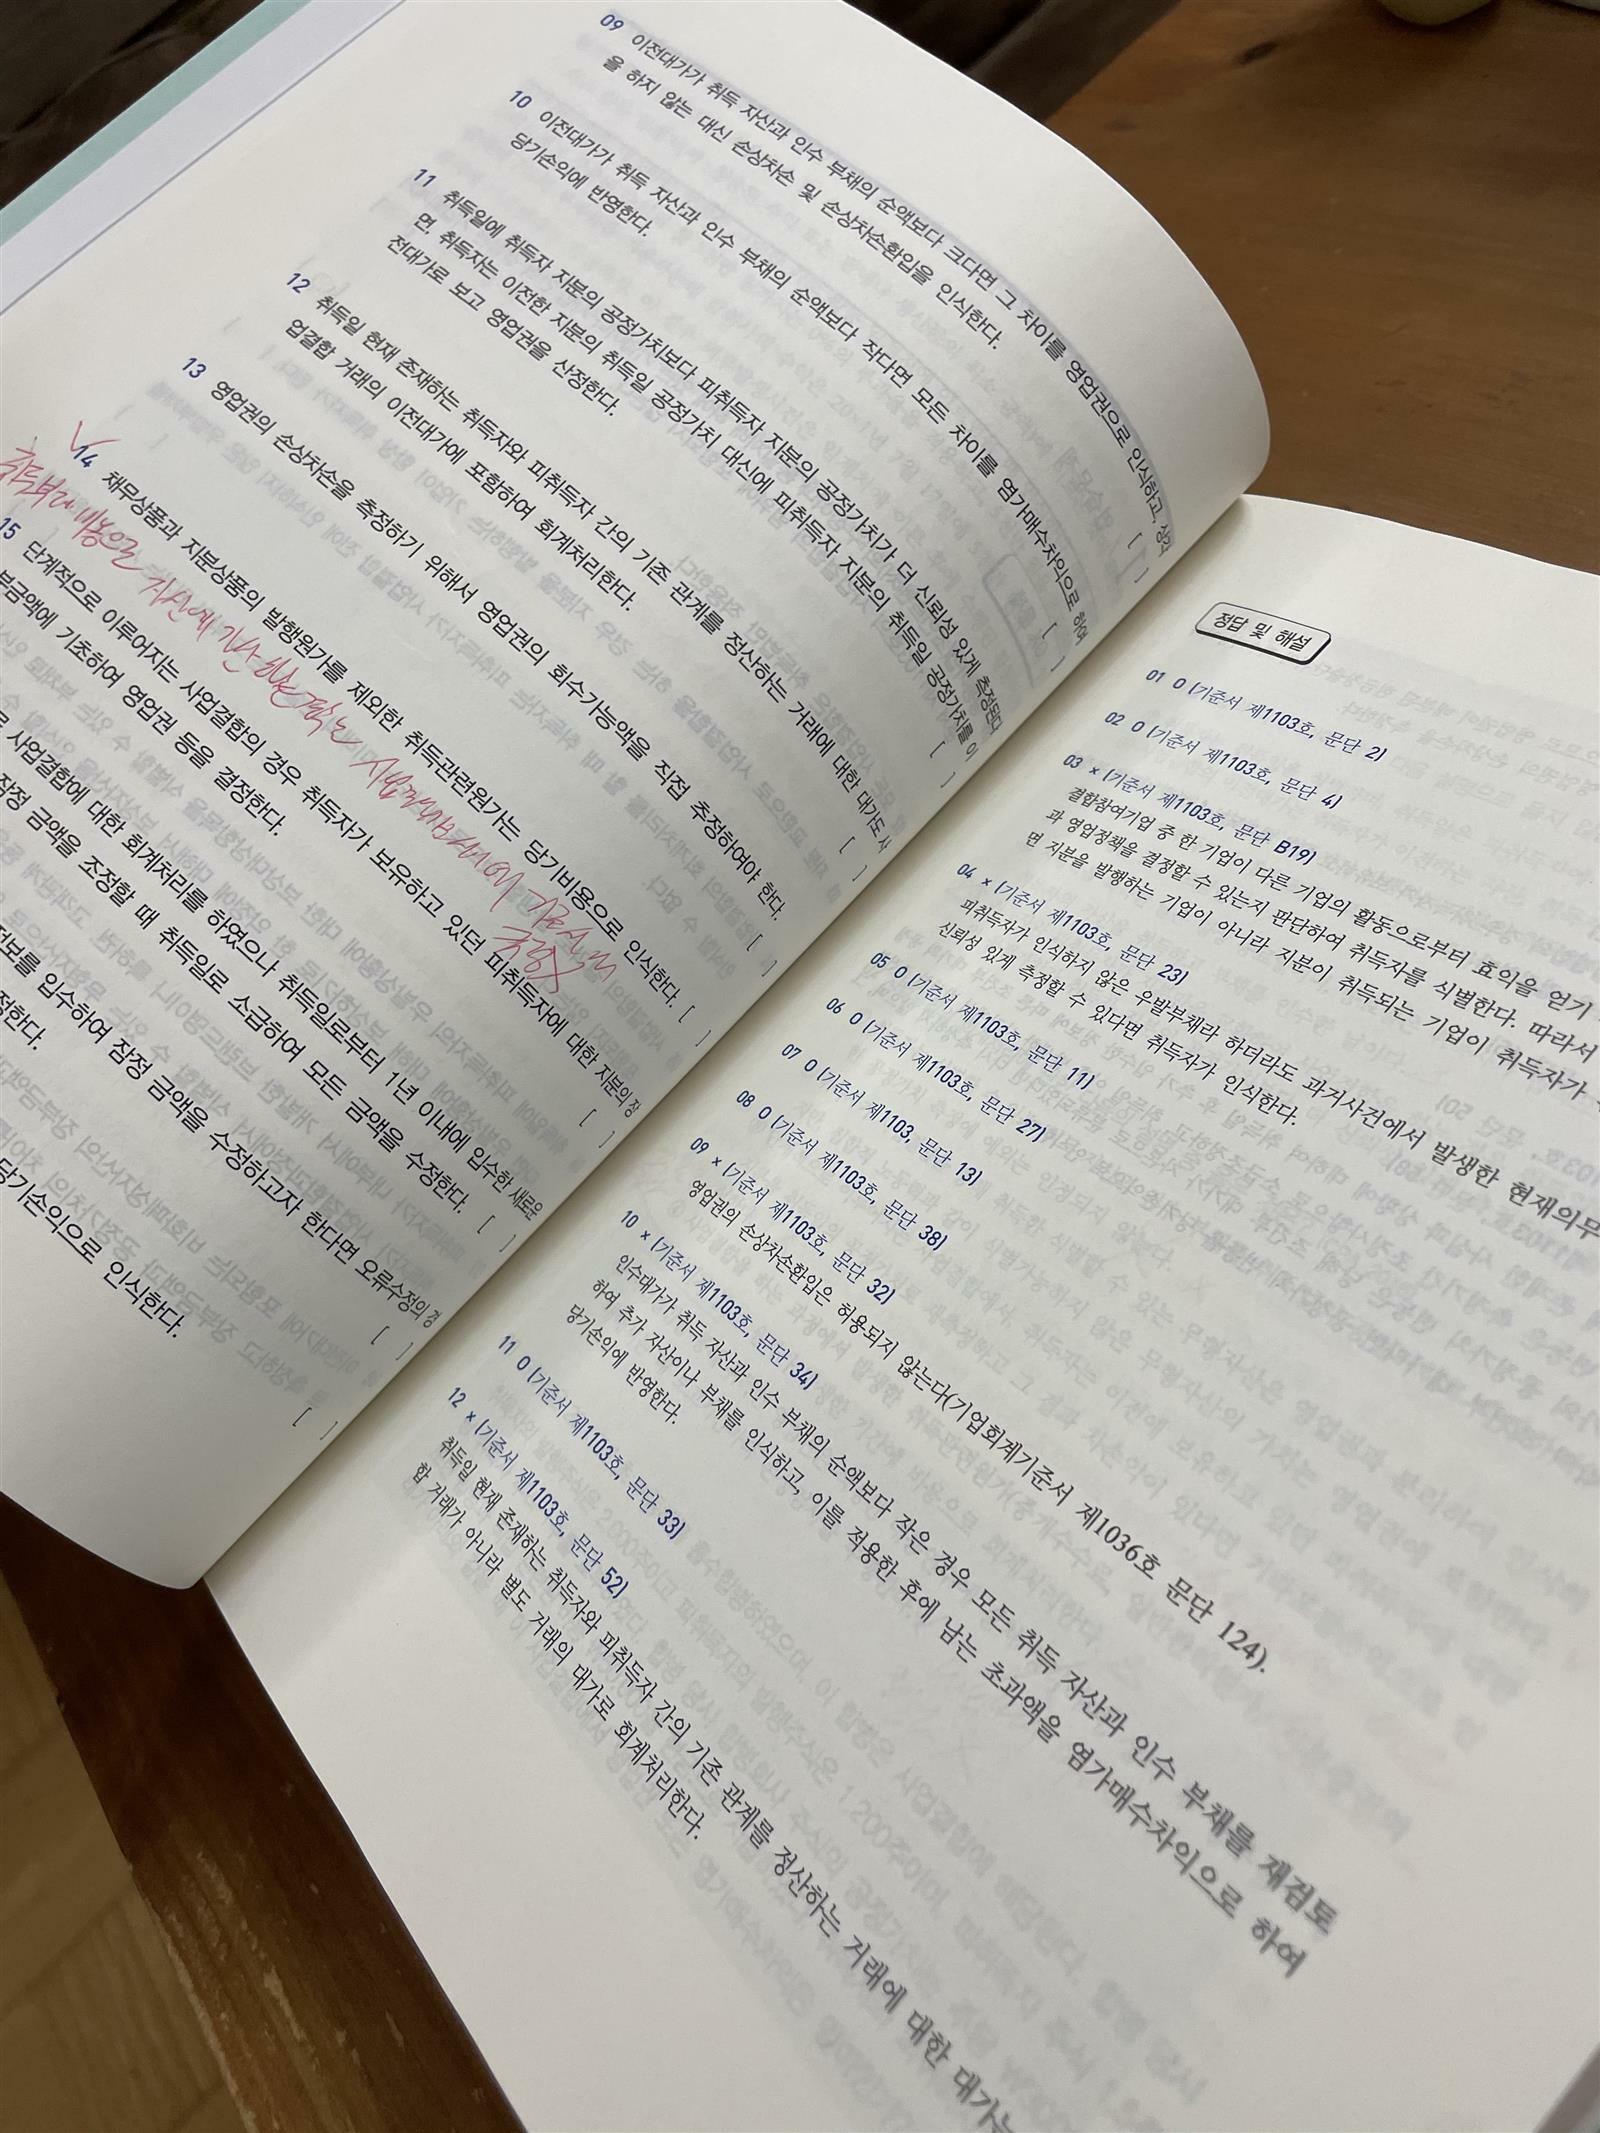 09 이전대가가 취득 자산과 인수 부채의 순액보다 크다면 그 차이를 영업권으로 인식하고, 상각
을 하지 않는 대신 손상차손 및 손상차손환입을 인식한다. [ ]
10 이전대가가 취득 자산과 인수 부채의 순액보다 작다면 모든 차이를 염가매수차익으로 하여
당기손익에 반영한다. [ ]
11 취득일에 취득자 지분의 공정가치보다 피취득자 지분의 공정가치가 더 신뢰성 있게 측정된다
면, 취득자는 이전한 지분의 취득일 공정가치 대신에 피취득자 지분의 취득일 공정가치를 이
전대가로 보고 영업권을 산정한다. [ ]
12 취득일 현재 존재하는 취득자와 피취득자 간의 기존 관계를 정산하는 거래에 대한 대가도 사
업결합 거래의 이전대가에 포함하여 회계처리한다. [ ]
13 영업권의 손상차손을 측정하기 위해서 영업권의 회수가능액을 직접 추정하여야 한다. [ ]
14 채무상품과 지분상품의 발행원가를 제외한 취득관련원가는 당기비용으로 인식한다. [ ]
15 단계적으로 이루어지는 사업결합의 경우 취득자가 보유하고 있던 피취득자에 대한 지분의 장
부금액에 기초하여 영업권 등을 결정한다. [ ]
사업결합에 대한 회계처리를 하였으나 취득일로부터 1년 이내에 입수한 새로운
잠정 금액을 조정할 때 취득일로 소급하여 모든 금액을 수정한다. [ ]
정보를 입수하여 잠정 금액을 수정하고자 한다면 오류수정의 경
[ ]
당기손익으로 인식한다. [ ]
정답 및 해설
01 O (기준서 제1103호, 문단 2)
02 O (기준서 제1103호, 문단 4)
03 × (기준서 제1103호, 문단 B19)
결합참여기업 중 한 기업이 다른 기업의 활동으로부터 효익을 얻기
과 영업정책을 결정할 수 있는지 판단하여 취득자를 식별한다. 따라서
면 지분을 발행하는 기업이 아니라 지분이 취득되는 기업이 취득자가
04 × (기준서 제1103호, 문단 23)
피취득자가 인식하지 않은 우발부채라 하더라도 과거사건에서 발생한 현재의무
신뢰성 있게 측정할 수 있다면 취득자가 인식한다.
05 O (기준서 제1103호, 문단 11)
06 O (기준서 제1103호, 문단 27)
07 O (기준서 제1103, 문단 13)
08 O (기준서 제1103호, 문단 38)
09 × (기준서 제1103호, 문단 32)
영업권의 손상차손환입은 허용되지 않는다(기업회계기준서 제1036호 문단 124).
10 × (기준서 제1103호, 문단 34)
인수대가가 취득 자산과 인수 부채의 순액보다 작은 경우 모든 취득 자산과 인수 부채를 재검토
하여 추가 자산이나 부채를 인식하고, 이를 적용한 후에 남는 초과액을 염가매수차익으로 하여
당기손익에 반영한다.
11 O (기준서 제1103호, 문단 33)
12 × (기준서 제1103호, 문단 52)
취득일 현재 존재하는 취득자와 피취득자 간의 기존 관계를 정산하는 거래에 대한 대가는
합 거래가 아니라 별도 거래의 대가로 회계처리한다.